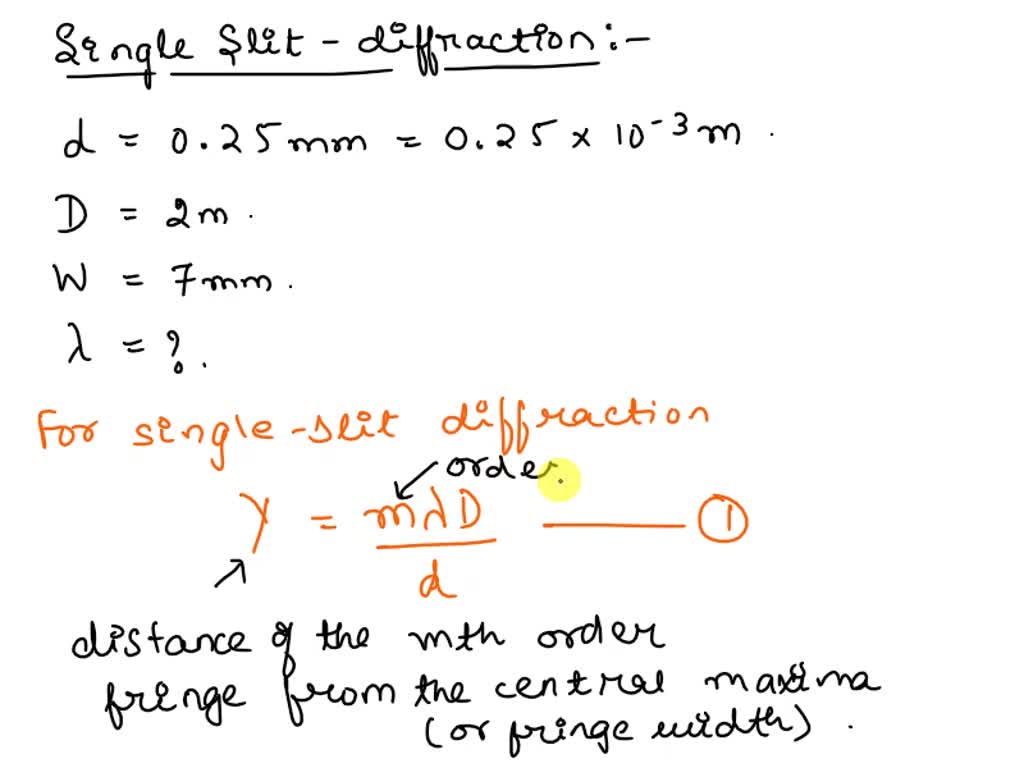 Single Slit - diffraction :-
d = 0.25 mm = 0.25 × 10⁻³ m .
D = 2m .
W = 7mm .
λ = ? .
For single-slit diffraction
order
Y = mλD / d ——— ①
distance of the mth order
fringe from the central maxima
(or fringe width) .